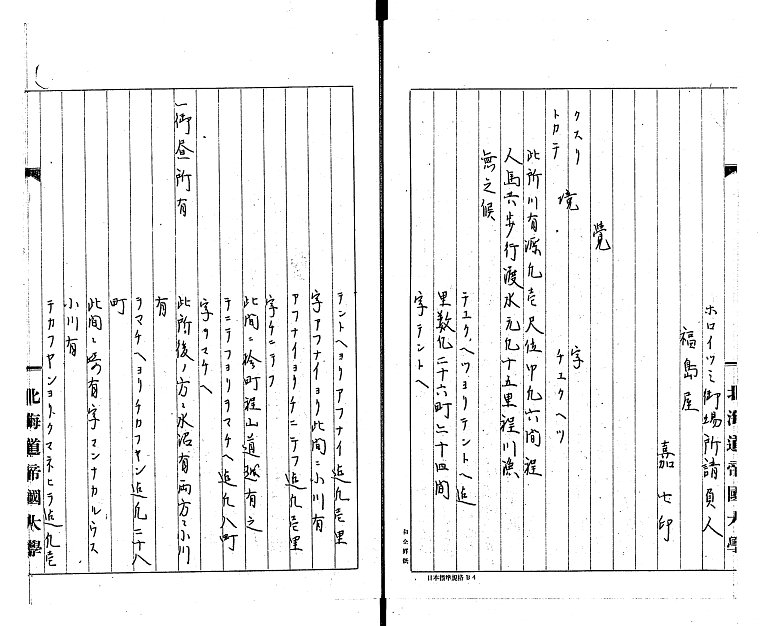 ホロイツミ御場所請負人
福島屋
嘉七印
覺
クスリ
トカチ
境
字
チエクヘツ
此所川有源凡壱尺位巾凡六間程
人馬共歩行渡水元凡十五里程川漁
無之候
チエクヘツヨリテントヘ迄
里数凡二十六町三十四間
字テントヘ
北海道帝國大學
日本標準規格B4
テントヘヨリアフナイ迄凡壱里
字アフナイヨリ此間ニ小川有
アフナイヨリチニテフ迄凡壱里
字チニテフ
此間ニ拾町程山道越有之
チニテフヨリヲマチヘ迄凡八町
字ヲマチヘ
一御昼所有
此所後ノ方ニ水沼有両方ニ小川
有
ヲマチヘヨリチカフヤン迄凡二十八
町
此間ニ崎有字マンナカルウス
小川有
チカフヤンヨリクマネヒラ迄凡壱
北海道帝國大學